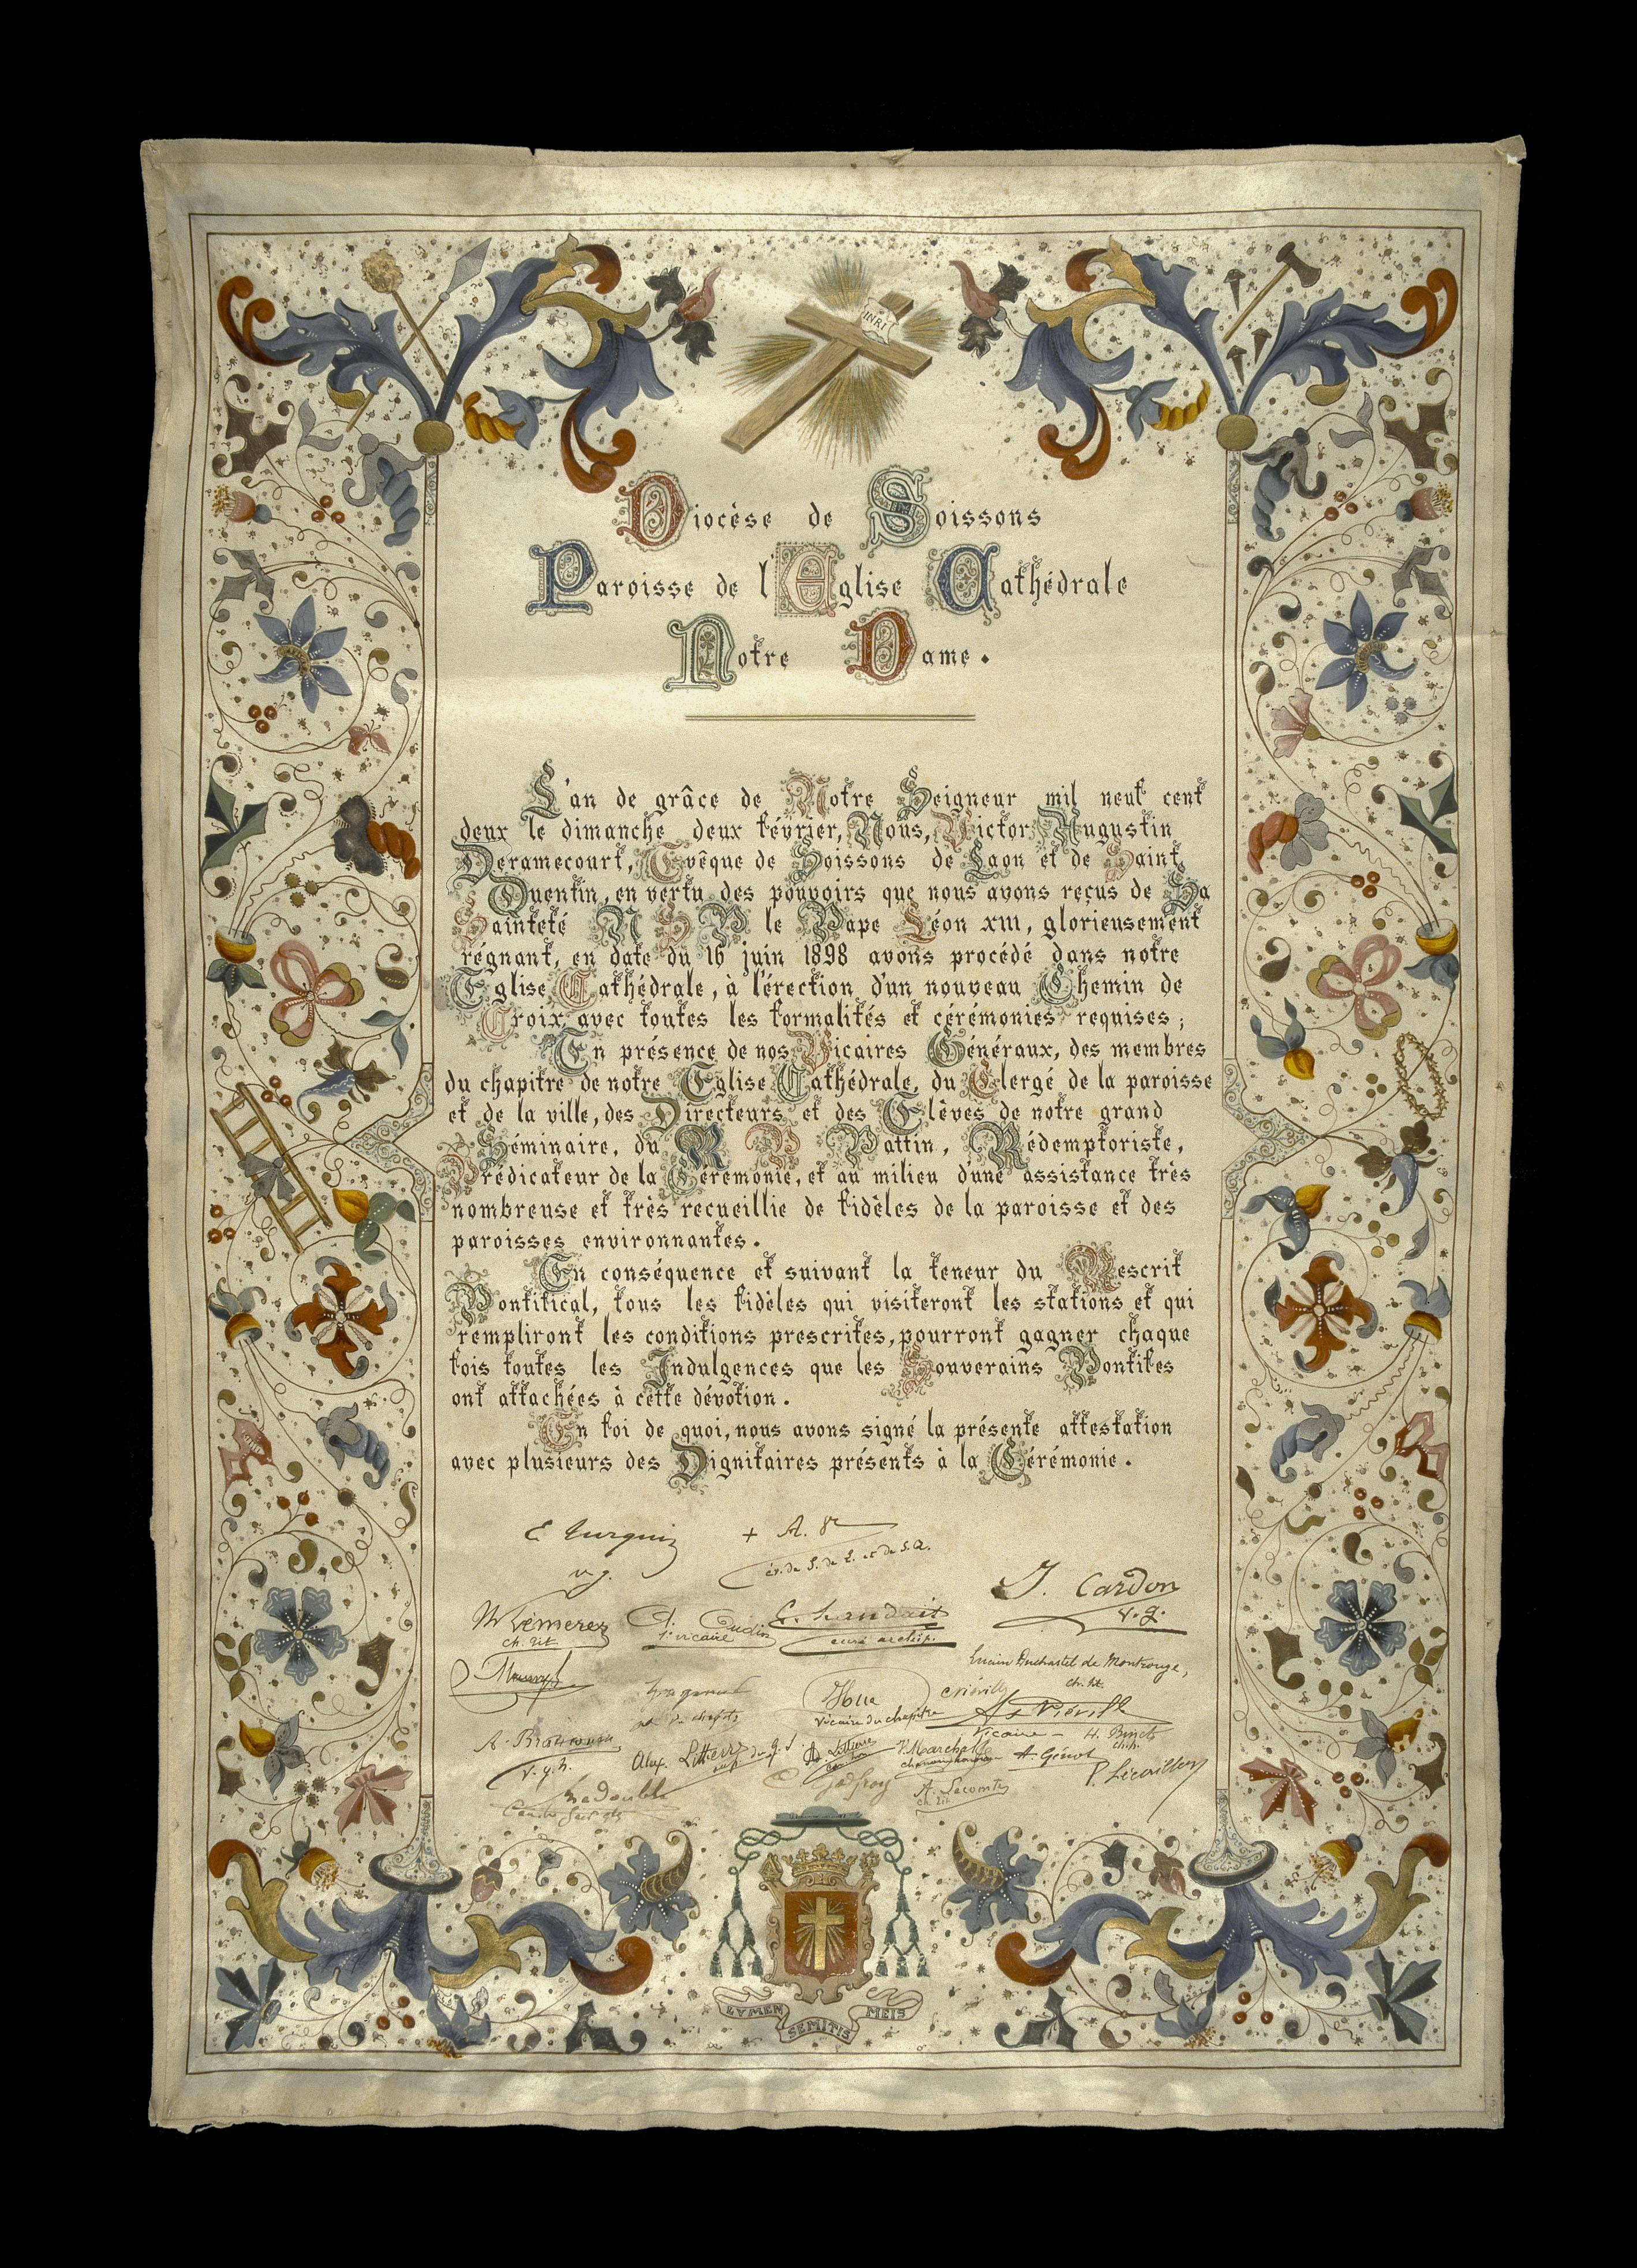 INRI
Diocèse de Soissons
Paroisse de l'Eglise Cathédrale
Notre Dame.
L'an de grâce de Notre Seigneur mil neuf cent
deux le dimanche deux février, Nous, Victor Augustin
Deramecourt, Evêque de Soissons de Laon et de Saint
Quentin, en vertu des pouvoirs que nous avons reçus de Sa
Sainteté N S P le Pape Léon XIII, glorieusement
régnant, en date du 16 juin 1898 avons procédé dans notre
Eglise Cathédrale, à l'érection d'un nouveau Chemin de
Croix avec toutes les formalités et cérémonies requises ;
En présence de nos Vicaires Généraux, des membres
du chapitre de notre Eglise Cathédrale, du Clergé de la paroisse
et de la ville, des Directeurs et des Elèves de notre grand
Séminaire, du R P Pattin, Rédemptoriste,
Prédicateur de la Cérémonie, et au milieu d'une assistance très
nombreuse et très recueillie de fidèles de la paroisse et des
paroisses environnantes.
En conséquence et suivant la teneur du Rescrit
Pontifical, tous les fidèles qui visiteront les stations et qui
rempliront les conditions prescrites, pourront gagner chaque
fois toutes les Indulgences que les Souverains Pontifes
ont attachées à cette dévotion.
En foi de quoi, nous avons signé la présente attestation
avec plusieurs des Dignitaires présents à la Cérémonie.
E Turquin
+ A.
v.g.
év. de S. de L. et de S.Q.
J. Cardon
v.g.
ch. tit.
1er vicaire
curé archip.
Duchastel de Montrouge,
ch. tit.
vicaire du chapitre
A. Viéville
vicaire
H. Binet
ch. h.
v. g. h.
Alex. Littierre
A. Génot
Ledouble
Godfroy
A. Lecomte
ch. tit.
P. Lécaillon
LVMEN
SEMITIS
MEIS